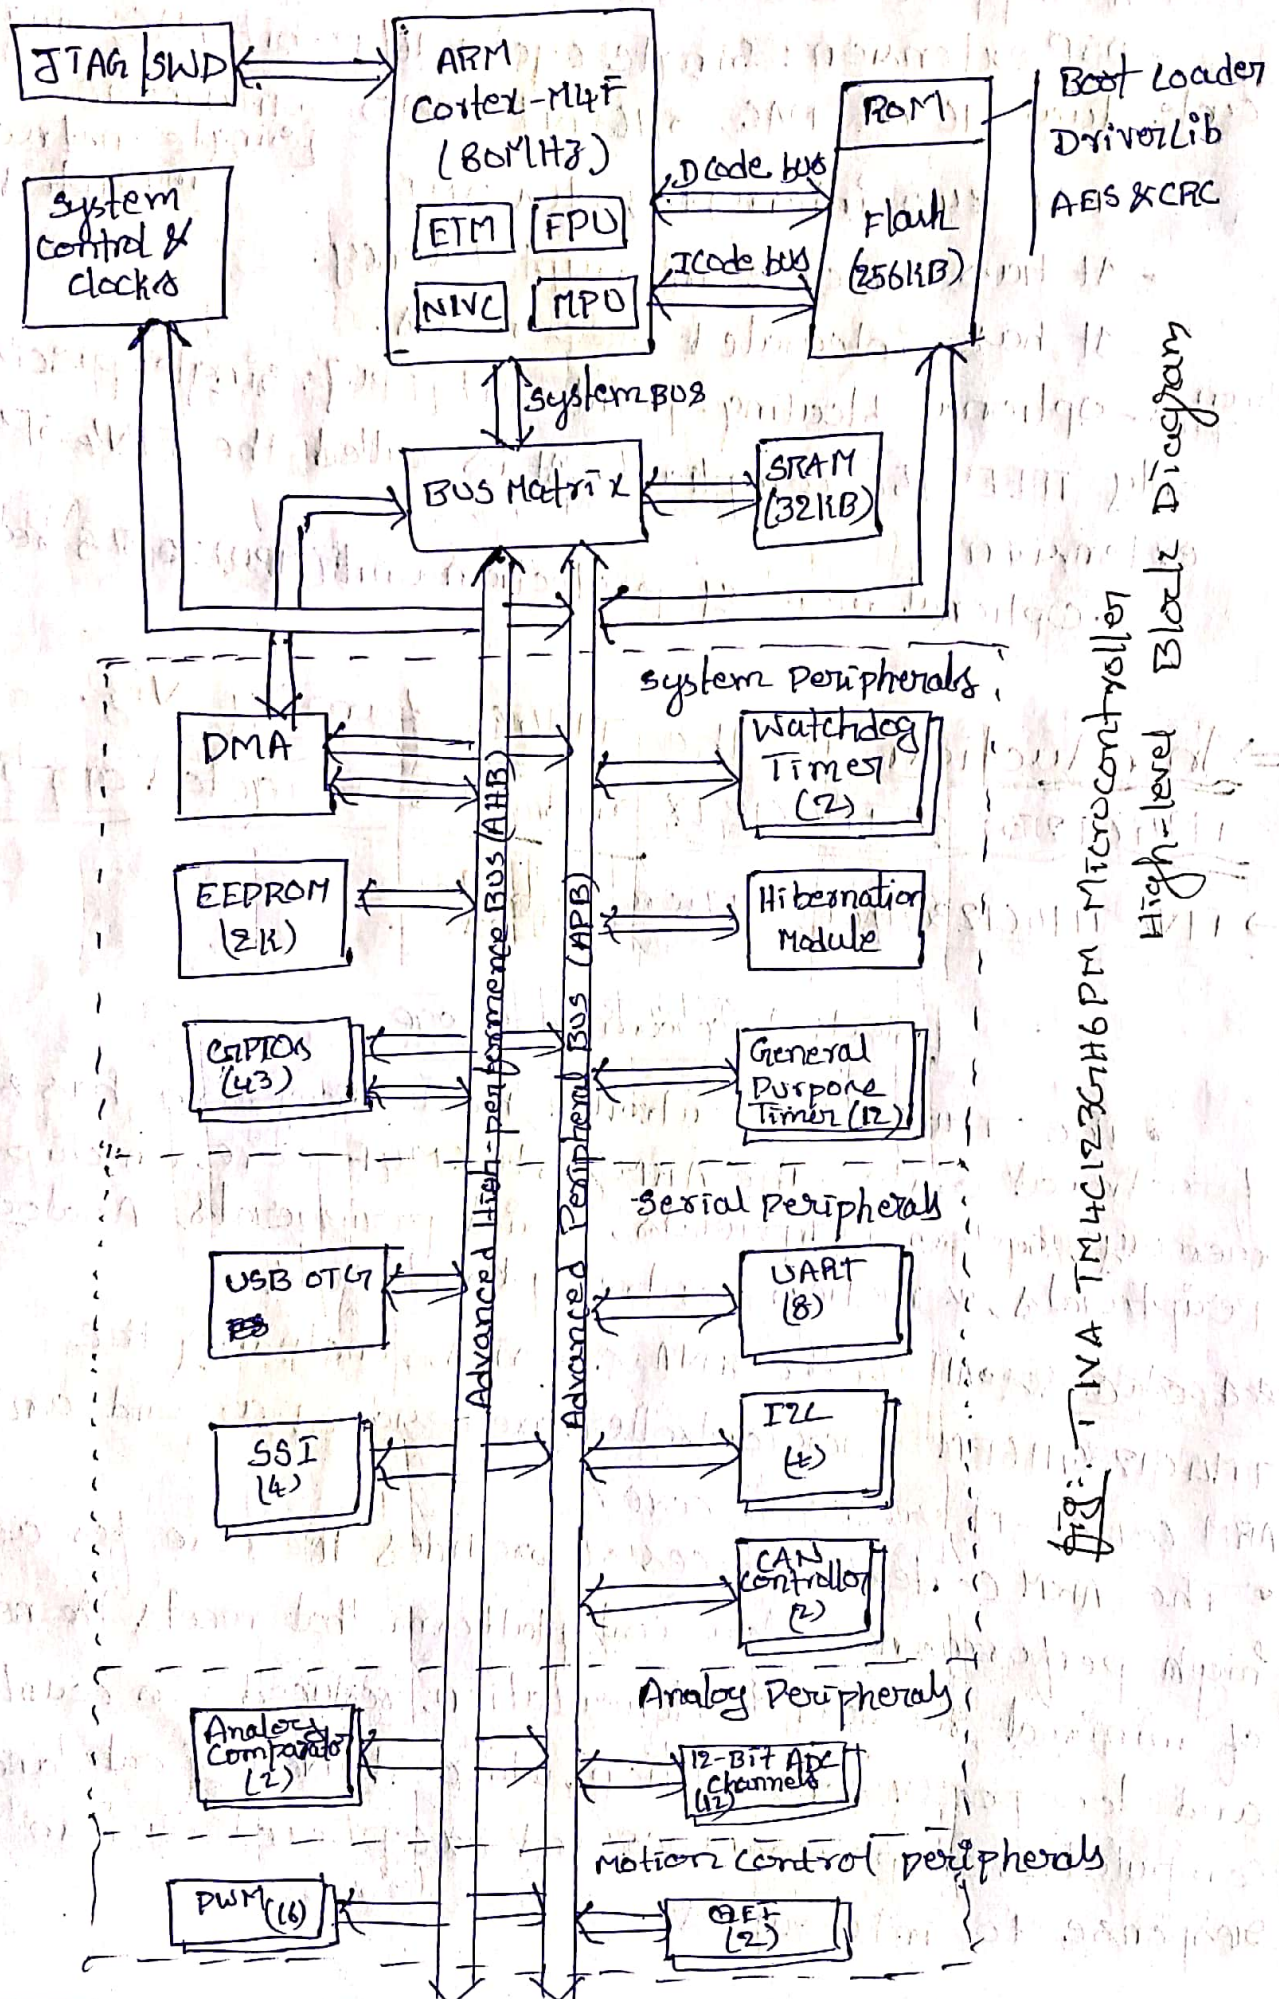 JTAG|SWD
ARM
Cortex-M4F
(80MHz)
ETM
FPU
NIVC
MPU
System
Control &
Clocks
DCode bus
ICode bus
ROM
Flash
(256KB)
Boot Loader
DriverLib
AES & CRC
System BUS
BUS Matrix
SRAM
(32KB)
System Peripherals
DMA
Watchdog
Timer
(2)
EEPROM
(2K)
Hibernation
Module
GPIOs
(43)
General
Purpose
Timer (12)
Advanced High-performence BUS (AHB)
Advanced Peripheral BUS (APB)
Serial Peripherals
USB OTG
UART
(8)
SSI
(4)
I2C
(4)
CAN
Controller
(2)
Analog Peripherals
Analog
Comparator
(2)
12-Bit ADC
Channels
(12)
Motion Control peripherals
PWM (16)
QEI
(2)
fig: TIVA TM4C123GH6PM-Microcontroller
High-level Block Diagram